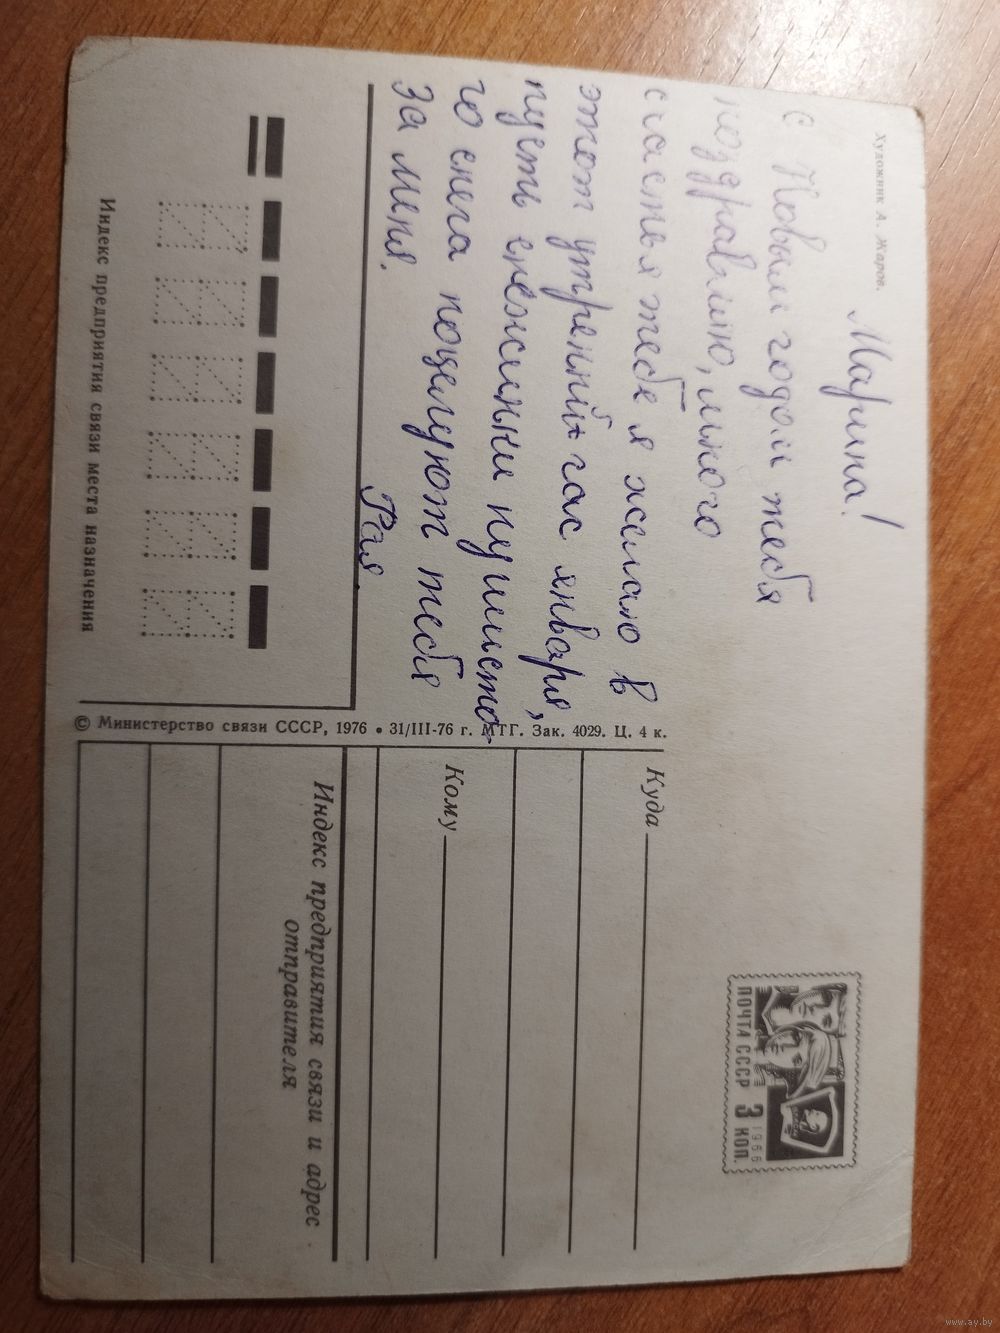 Художник А. Жаров.
Марина!
с Новым годом тебя
поздравляю, много
счастья тебе я желаю в
этот утренний час января,
пусть снежинки пушисто-
го снега поцелуют тебя
за меня.
Рая.
Индекс предприятия связи места назначения
© Министерство связи СССР, 1976 • 31/III-76 г. МТГ. Зак. 4029. Ц. 4 к.
ПОЧТА СССР 3 КОП.
1966
Куда
Кому
Индекс предприятия связи и адрес
отправителя
www.ay.by